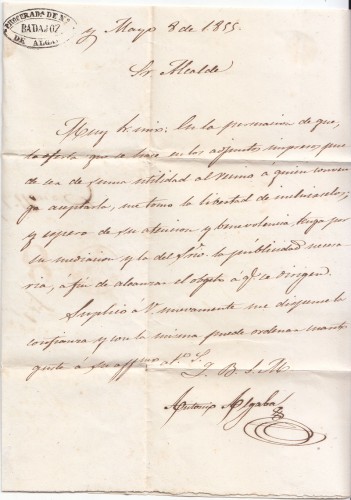 PROCURADA DE N
BADAJOZ
DE ALGA
y Mayo 8 de 1855.
Sr. Alcalde
Muy Sr. mio: En la persuacion de que
la oferta que se hace en los adjuntos impresos pue
de ser de suma utilidad al a quien conven
ga aceptarla, me tomo la libertad de incluirselos;
y espero de su atencion y benevolencia, haga por
su mediacion y la del Srio. la publicidad necesa
ria, a fin de alcanzar el objeto á q.e se dirigen
Suplicó á V. nuevamente me dispense la
confianza y con la misma puede ordenar cuanto
guste á su aff.mo S. S.
Q. B. S. M.
Antonio Algaba